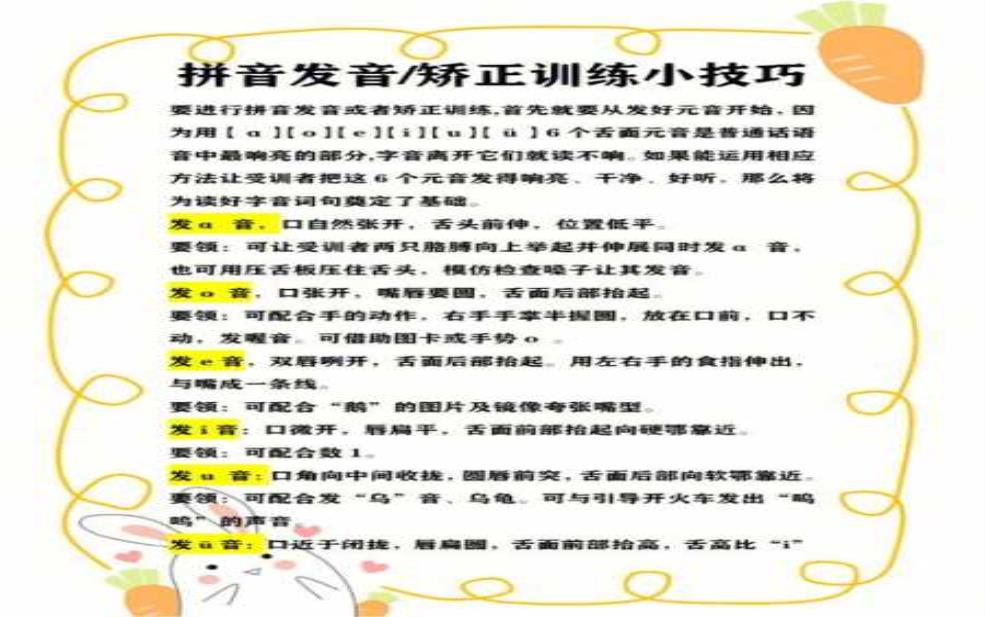 拼音发音/矫正训练小技巧
要进行拼音发音或者矫正训练,首先就要从发好元音开始，因
为用［ɑ］［o］［e］［i］［u］［ü］6个舌面元音是普通话语
音中最响亮的部分,字音离开它们就读不响。如果能运用相应
方法让受训者把这6个元音发得响亮、干净、好听，那么将
为读好字音词句奠定了基础。
发ɑ 音，口自然张开，舌头前伸，位置低平。
要领：可让受训者两只胳膊向上举起并伸展同时发ɑ 音，
也可用压舌板压住舌头，模仿检查嗓子让其发音。
发o 音，口张开，嘴唇要圆，舌面后部抬起。
要领：可配合手的动作，右手手掌半握圈，放在口前，口不
动，发喔音。可借助图卡或手势o 。
发e音，双唇咧开，舌面后部抬起。用左右手的食指伸出，
与嘴成一条线。
要领：可配合“鹅”的图片及镜像夸张嘴型。
发i音：口微开，唇扁平，舌面前部抬起向硬鄂靠近。
要领：可配合数1。
发u 音：口角向中间收拢，圆唇前突，舌面后部向软鄂靠近。
要领：可配合发“乌”音、乌龟。可与引导开火车发出“呜
呜”的声音。
发ü音：口近于闭拢，唇扁圆，舌面前部抬高，舌高比“i”